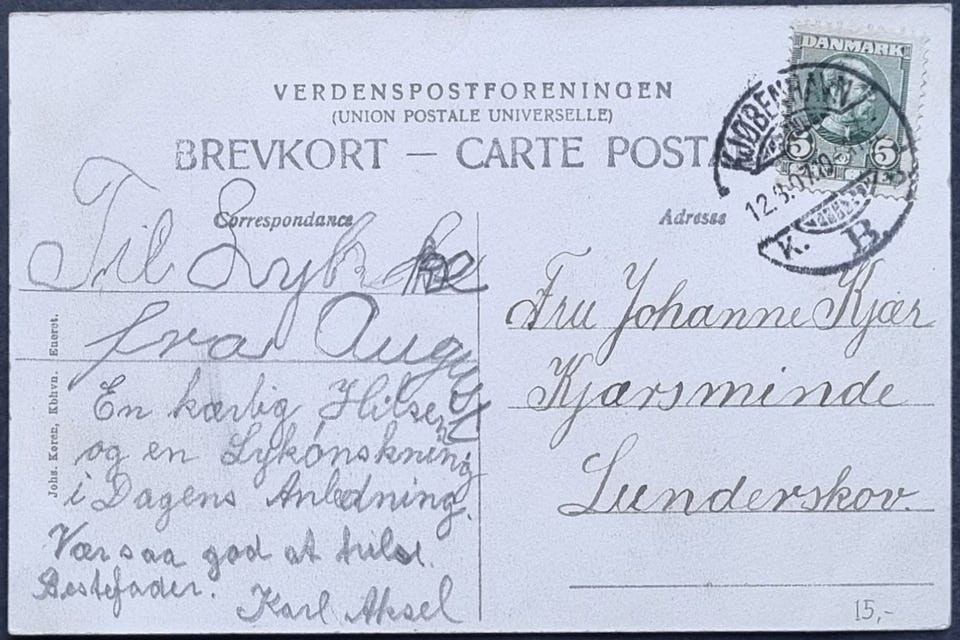 VERDENSPOSTFORENINGEN
(UNION POSTALE UNIVERSELLE)
BREVKORT — CARTE POSTA
Correspondance
Til Lykke
fra August
En kærlig Hilsen
og en Lykønskning
i Dagens Anledning.
Vær saa god at hilse
Bestefader.
Karl Aksel
Johs. Koren, Kbhvn. Eneret.
Adresse
Fru Johanne Kjær
Kjærsminde
Lunderskov.
DANMARK
5 5
KJØBENHAVN
12.8.07.
K. B.
15,-